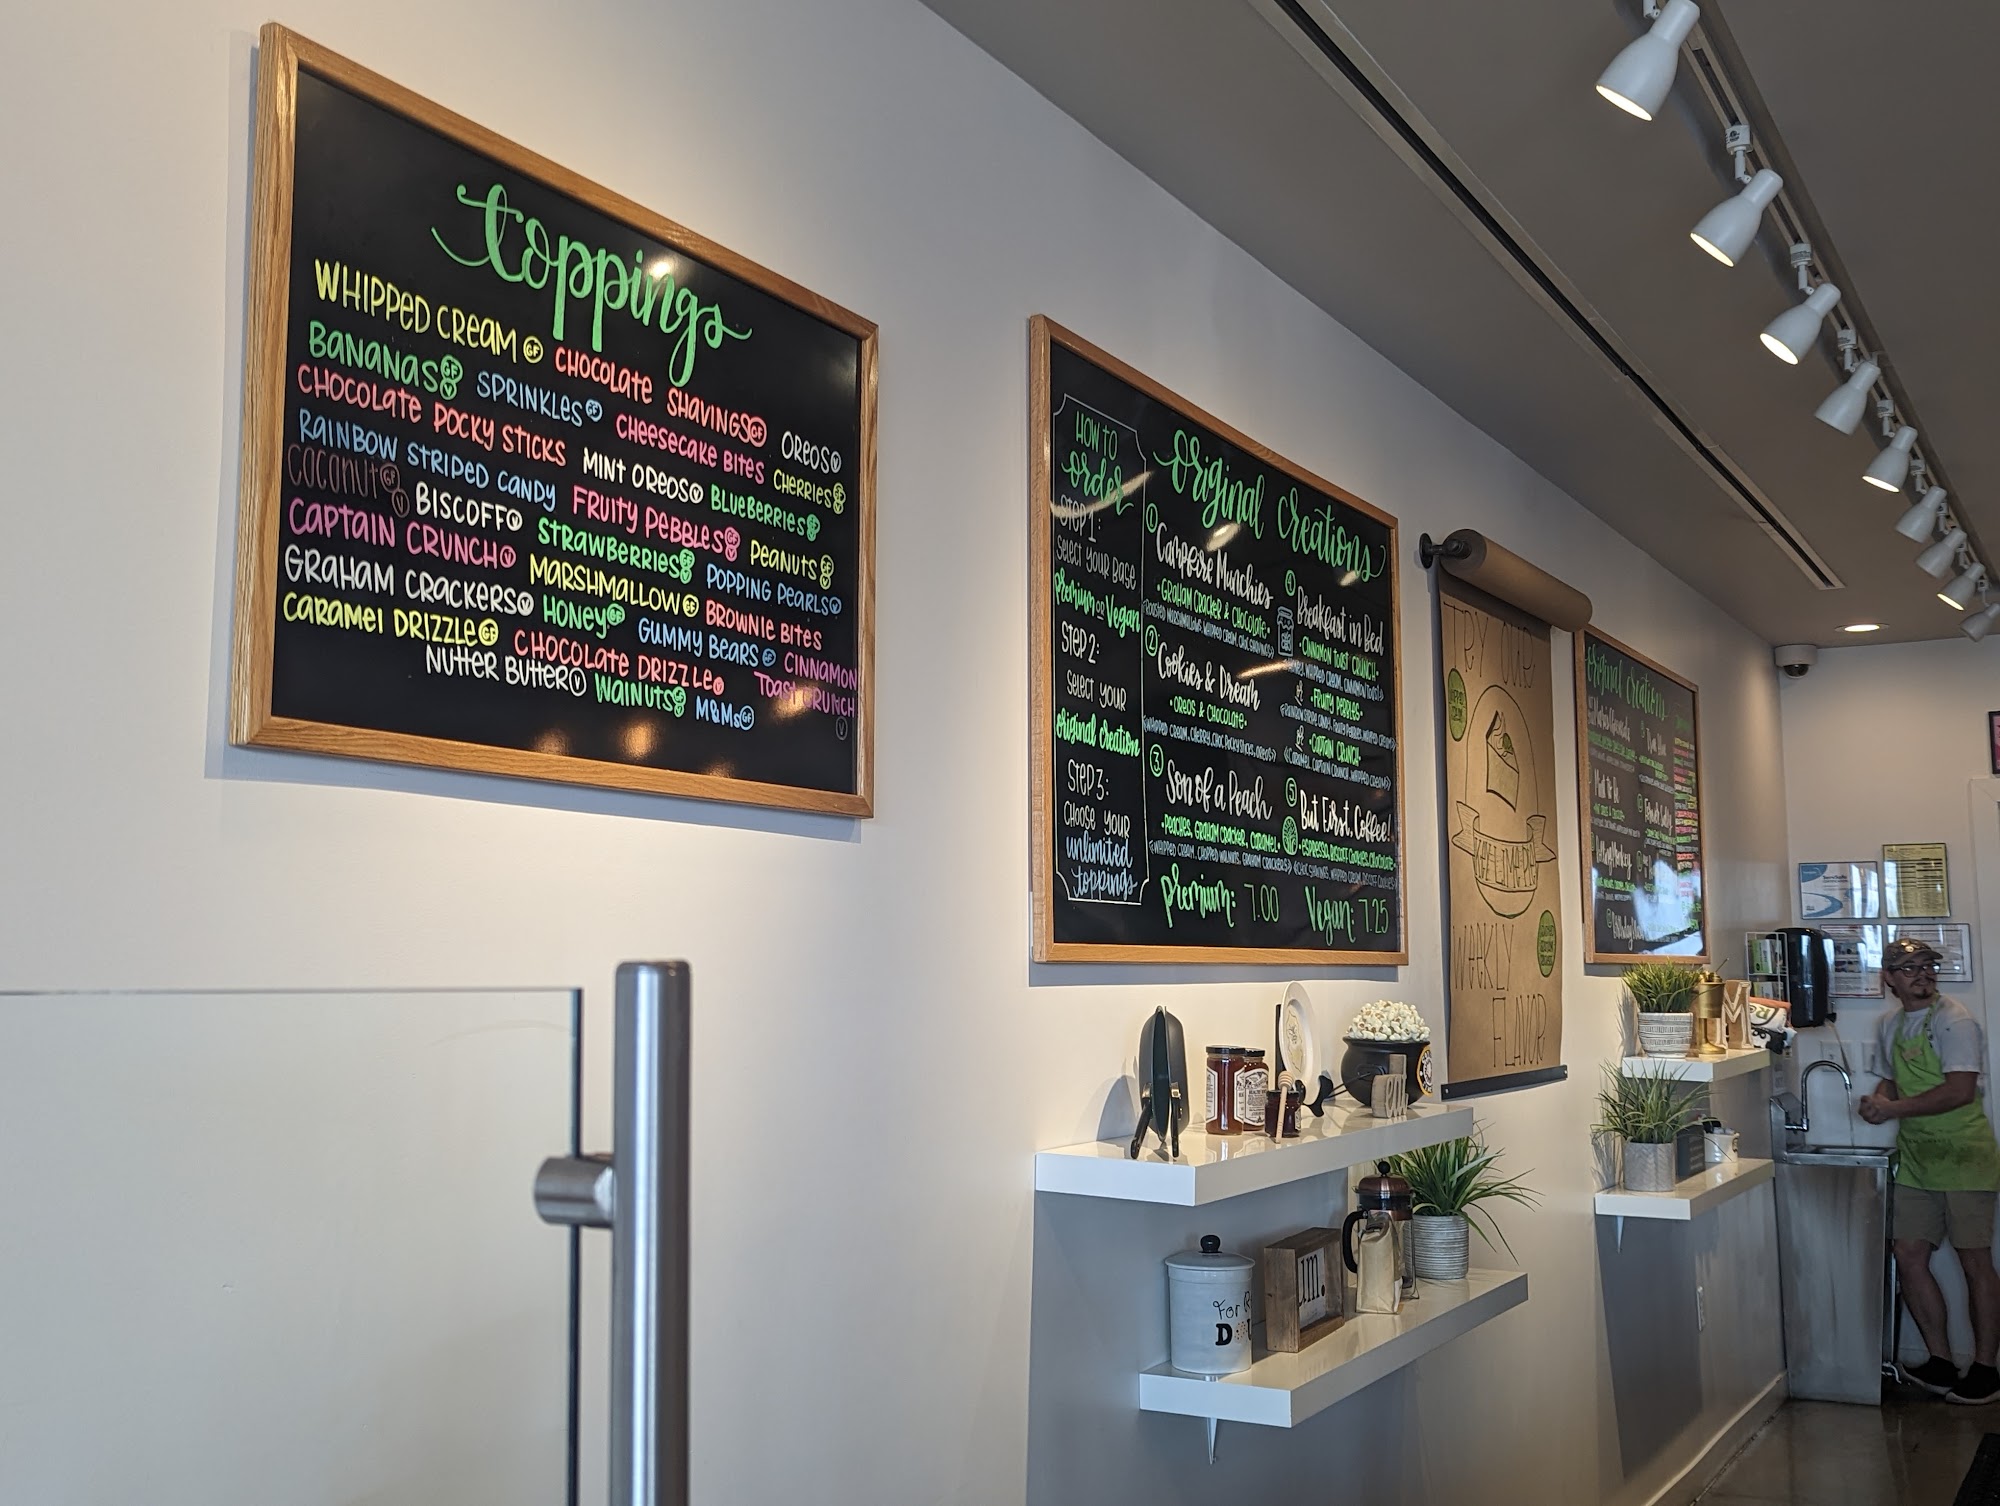 toppings
WHIPPED CREAM GF CHOCOLATE SHAVINGS GF OREOS V
BANANAS GF V SPRINKLES GF CHEESECAKE BITES CHERRIES GF V
CHOCOLATE POCKY STICKS MINT OREOS V BLUEBERRIES GF V
RAINBOW STRIPED CANDY FRUITY PEBBLES GF PEANUTS GF V
COCONUT GF V BISCOFF V STRAWBERRIES GF V POPPING PEARLS V
CAPTAIN CRUNCH V MARSHMALLOW GF BROWNIE BITES
GRAHAM CRACKERS V HONEY GF GUMMY BEARS GF CINNAMON
CARAMEL DRIZZLE GF CHOCOLATE DRIZZLE TOAST CRUNCH V
NUTTER BUTTER V WALNUTS GF V M&Ms GF
HOW TO
order
STEP 1:
Select your Base
Premium or Vegan
STEP 2:
SELECT YOUR
original creation
STEP 3:
CHOOSE YOUR
unlimited
toppings
Original Creations
1 Campfire Munchies
• GRAHAM CRACKER & CHOCOLATE •
(ROASTED MARSHMALLOWS, WHIPPED CREAM, CHOC SHAVINGS)
2 Cookies & Dream
• OREOS & CHOCOLATE •
(WHIPPED CREAM, CHERRY, CHOC POCKY STICKS, OREOS)
3 Son of a Peach
• PEACHES, GRAHAM CRACKER, CARAMEL •
(WHIPPED CREAM, CHOPPED WALNUTS, GRAHAM CRACKERS)
4 Breakfast in Bed
• CINNAMON TOAST CRUNCH •
WHIPPED CREAM, CINNAMON TOAST
• FRUITY PEBBLES •
(RAINBOW STRIPE CANDY, FRUITY PEBBLES, WHIPPED CREAM)
• CAPTAIN CRUNCH •
(CARAMEL, CAPTAIN CRUNCH, WHIPPED CREAM)
5 But First, Coffee!
• ESPRESSO, BISCOFF COOKIES, CHOCOLATE •
(CHOC SHAVINGS, WHIPPED CREAM, BISCOFF COOKIES)
Premium: 7.00 Vegan: 7.25
TRY OUR
KEY LIME PIE
WEEKLY
FLAVOR
Original Creations
For
D
um.
M